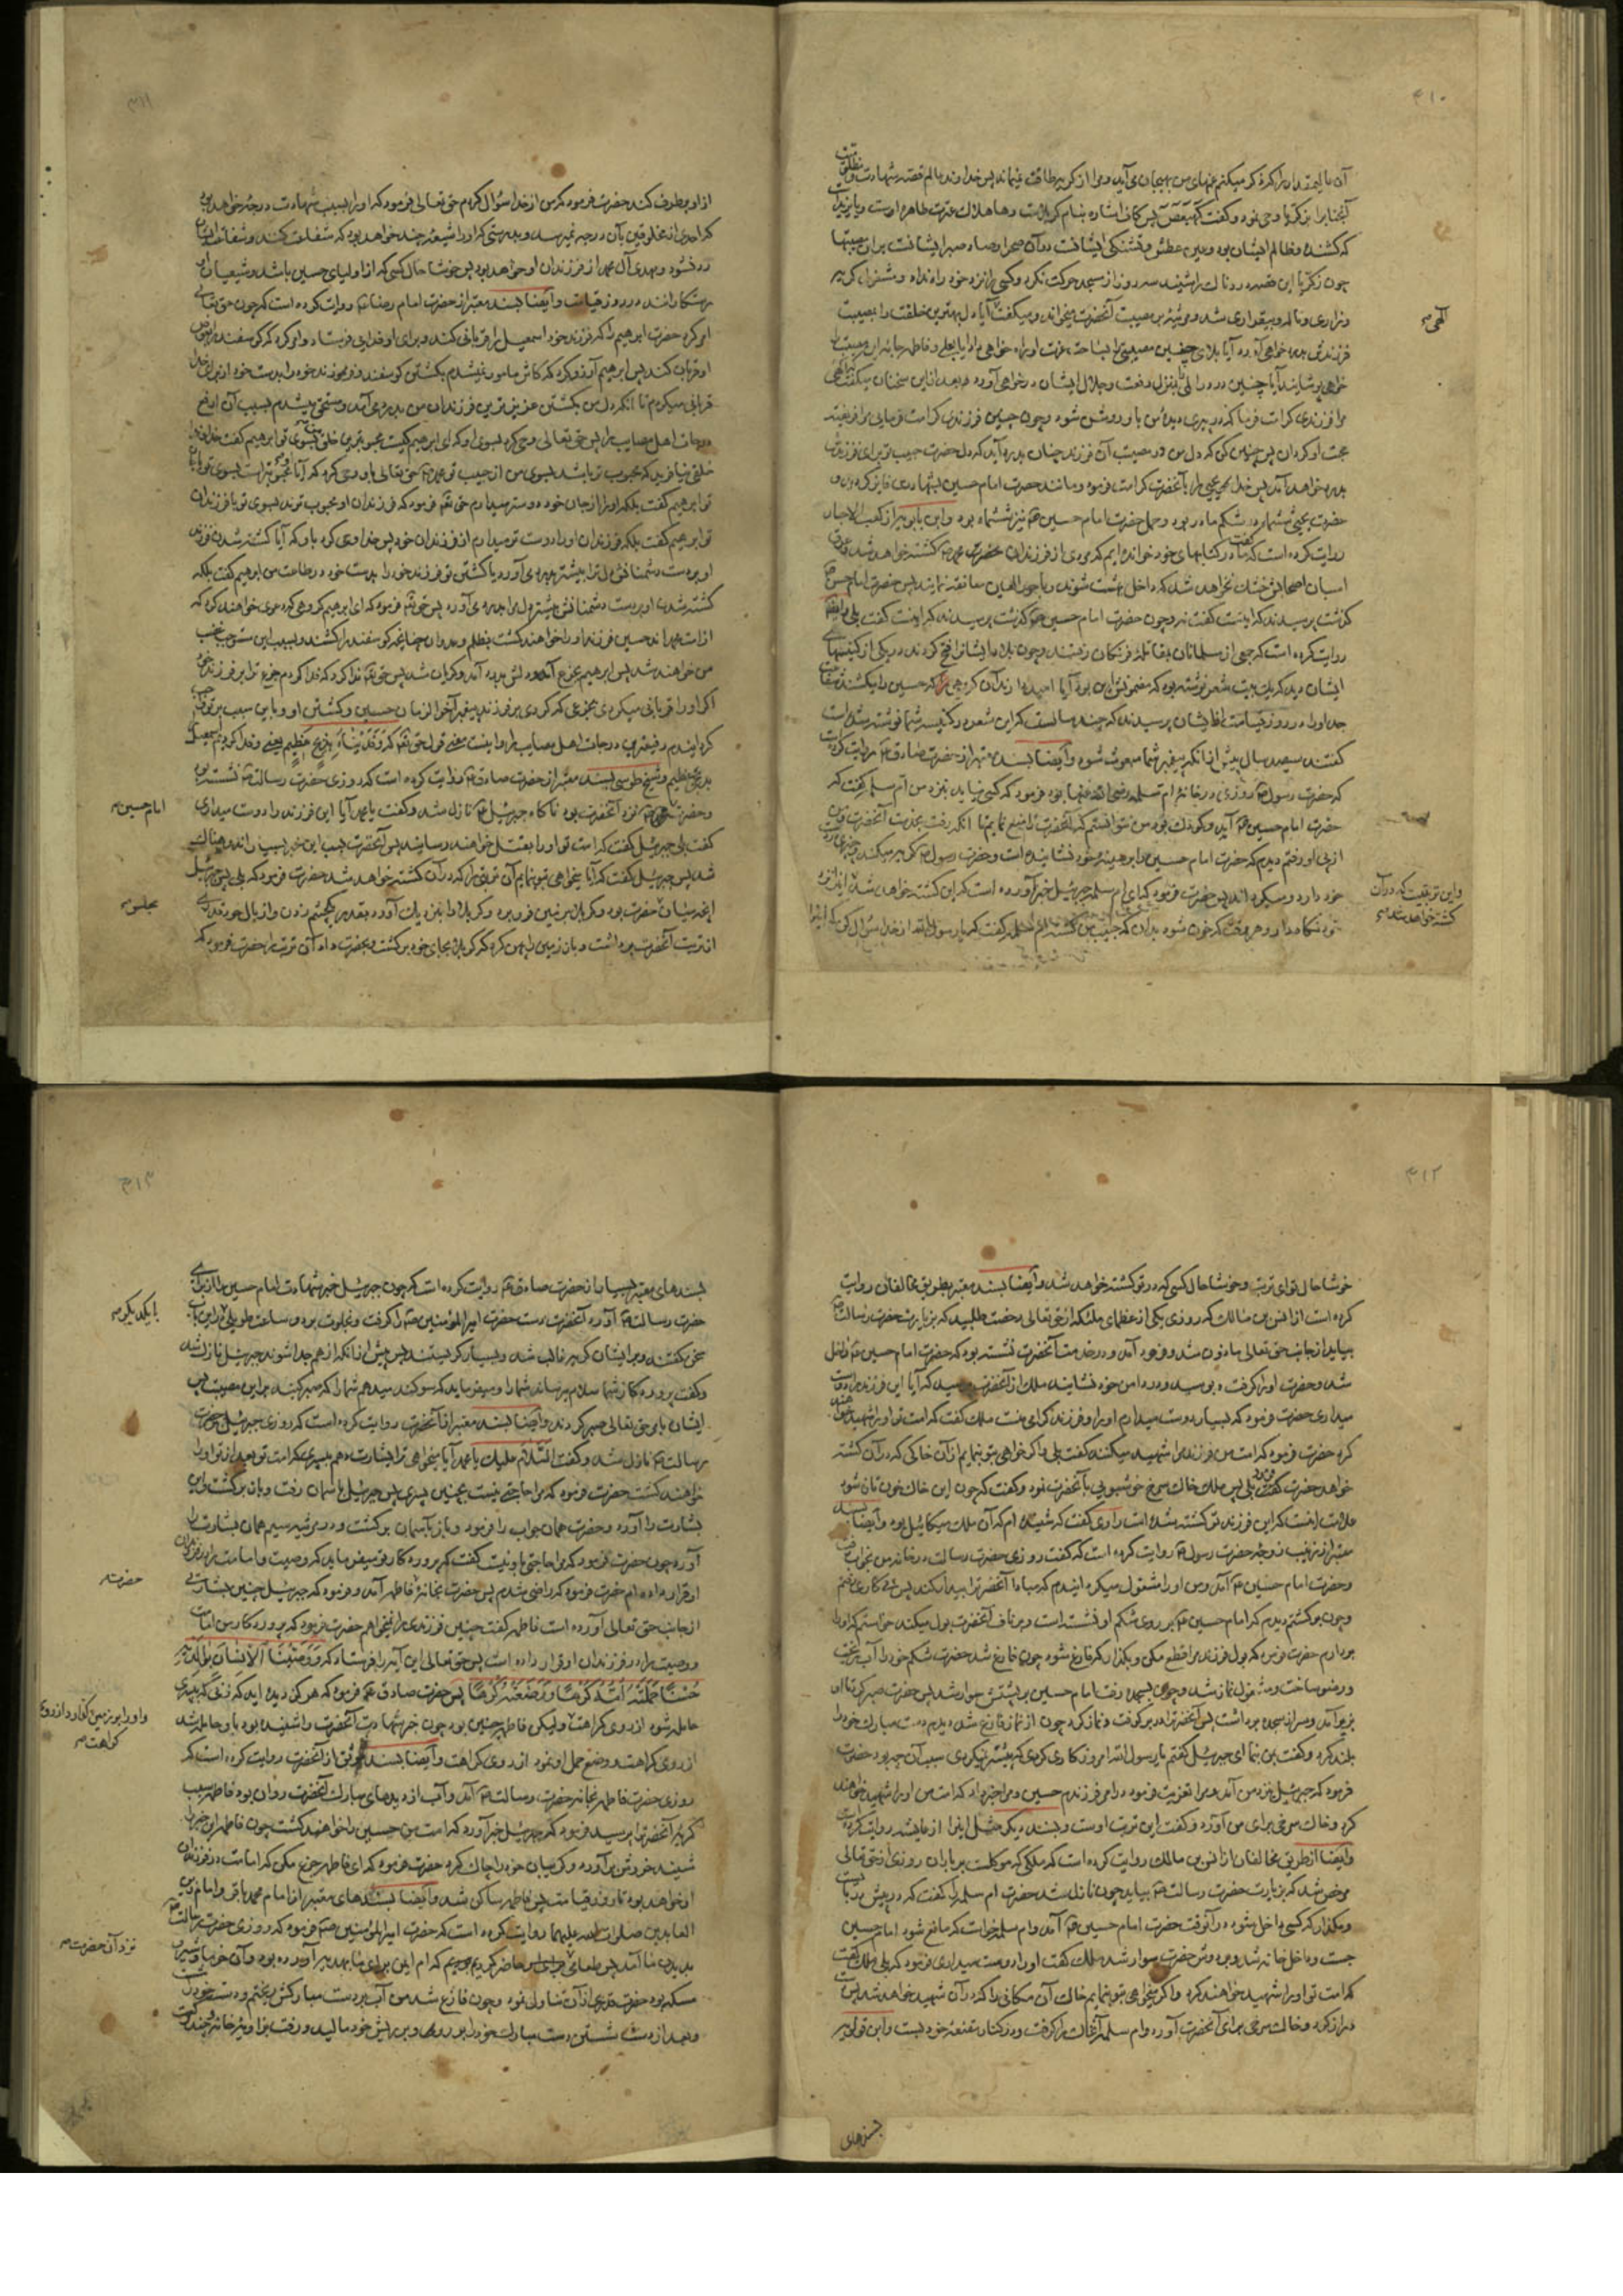 ۳۱۰
آن بزرگواران را ذکر میکنم غمهای من بهیجان می آید و مرا از گریه طاقت نمیماند پس خداوند عالم قصه شهادت
آنجناب را بزکریا وحی نمود و گفت کهیعص پس کاف اشاره بنام کربلاست و ها هلاک عترت طاهره اوست و یا یزید است
که کشنده و ظالم ایشان بود و عین عطش و تشنگی ایشانست در آن صحرا و صاد صبر ایشانست بر آن مصیبتها
چون زکریا این قصه دردناک را شنید سه روز از مسجد حرکت نکرد و کسی را نزد خود راه نداد و مشغول گریه
و زاری و ناله و بیقراری شد و مرثیه بر مصیبت آنحضرت میخواند و میگفت آیا دل بهترین خلقت را بمصیبت
الهی
فرزندش بدرد خواهی آورد آیا بلای چنین مصیبتی را بساحت عزت او راه خواهی داد آیا بعلی و فاطمه جامه این مصیبت را
خواهی پوشانید آیا چنین دردی را بمنزل رفعت و جلال ایشان در خواهی آورد و بعد از این سخنان میگفت الهی
مرا فرزندی کرامت فرما که در پیری دیده من باو روشن شود و چون چنین فرزندی کرامت فرمایی مرا فریفته
محبت او گردان پس چنان کن که دل من در مصیبت آن فرزند چنان بدرد آید که دل حضرت حبیب تو برای فرزندش
بدرد خواهد آمد پس خدا یحیی را بآنحضرت کرامت فرمود و مانند حضرت امام حسین بشهادت فایز گردید و
حضرت یحیی ششماه در شکم مادر بود و حمل حضرت امام حسین نیز ششماه بود و ابن بابویه از کعب الاحبار
روایت کرده است که گفت ما در کتابهای خود خوانده ایم که مردی از فرزندان حضرت محمد کشته خواهد شد و عرق
اسبان اصحابش خشک نخواهد شد که داخل بهشت شوند و با حور العین معانقه نمایند پس حضرت امام حسن
گذشت پرسیدند که اینست گفت نه و چون حضرت امام حسین گذشت پرسیدند که اینست گفت بلی و ایضا
روایت کرده است که جمعی از مسلمانان بمقاتله فرنگان رفتند و چون بلاد ایشانرا فتح کردند در یکی از کنیسهای
ایشان دیدند که یک بیت شعر نوشته بود که مضمونش این بود آیا امید دارند آن گروهی که حسین را بکشند شفاعت
جد او را در روز قیامت از ایشان پرسیدند که چند سالست که این شعر در کنیسه شما نوشته شده است
گفتند سیصد سال پیش از آنکه پیغمبر شما مبعوث شود و ایضا بسند معتبر از حضرت صادق روایت کرده است
که حضرت رسول روزی در خانه ام سلمه رضی الله عنها بود فرمود که کسی نیاید بنزد من ام سلمه گفت که
حضرت امام حسین آمد و کودک بود من نتوانستم که آنحضرت را منع نمایم تا آنکه رفت بخدمت آنحضرت و من
از پی او رفتم دیدم که حضرت امام حسین را بر سینه خود نشانیده است و حضرت رسول گریه میکند و چیزی در دست
خود دارد و میگرداند پس حضرت فرمود که ای ام سلمه جبرئیل خبر آورده است که این کشته خواهد شد
و این تربتیست که در آن کشته خواهد شد
نزد خود نگاه دار و هر وقت که خون شود بدان که حبیب من کشته شده ام سلمه گفت که یا رسول الله از خدا سؤال کن که اینرا
۳۱۱
از او برطرف کند حضرت فرمود که من از خدا سؤال کردم حق تعالی فرمود که او را بسبب شهادت درجه خواهد بود
که احدی از مخلوقین بآن درجه نمیرسد و بدرستی که او را شیعه چند خواهد بود که شفاعت کنند و شفاعت ایشان
رد نشود و مهدی آل محمد از فرزندان او خواهد بود پس خوشا حال کسی که از اولیای حسین باشد و شیعیان او
رستگارانند در روز قیامت و ایضا بسند معتبر از حضرت امام رضا روایت کرده است که چون حق تعالی
امر کرد حضرت ابرهیم را که فرزند خود اسمعیل را قربانی کند و برای او فدایی فرستاد و امر کرد که گوسفند را بعوض
او قربان کند پس ابرهیم آرزو کرد که کاش مامور نمیشدم بکشتن گوسفند و فرزند خود را بدست خود از برای خدا
قربانی میکردم تا آنکه دل من بکشتن عزیزترین فرزندان من بدرد می آمد و مستحق میشدم بسبب آن ارفع
درجات اهل مصایب را پس حق تعالی وحی کرد بسوی او که ای ابرهیم کیست محبوبترین خلق من بسوی تو ابرهیم گفت خداوندا
خلقی نیافریدی که محبوب تر باشد بسوی من از حبیب تو محمد حق تعالی باو وحی کرد که آیا او محبوبتر است بسوی تو یا جان
تو ابرهیم گفت بلکه او را از جان خود دوستر میدارم حق تعالی فرمود که فرزندان او محبوب ترند بسوی تو یا فرزندان
تو ابرهیم گفت بلکه فرزندان او را دوست تر میدارم از فرزندان خود پس خدا وحی کرد باو که آیا کشته شدن فرزند
او بر دست دشمنانش دل ترا بیشتر بدرد می آورد یا کشتن تو فرزند خود را بدست خود در طاعت من ابرهیم گفت بلکه
کشته شدن او بر دست دشمنانش بیشتر دل مرا بدرد می آورد پس حق تعالی فرمود که ای ابرهیم گروهی که دعوی خواهند کرد که
از امت محمدند حسین فرزند او را خواهند کشت بظلم و عدوان چنانچه گوسفند را کشند و بسبب این مستوجب غضب
من خواهند شد پس ابرهیم بجزع آمد و دلش بدرد آمد و گریان شد پس حق تعالی ندا کرد که فدا کردم جزع ترا بر فرزند خود
اگر او را قربانی میکردی بجزعی که کردی بر فرزند پیغمبر آخر الزمان حسین و کشتن او و باین سبب بر تو واجب
کردانیدم رفیعترین درجات اهل مصایب را و اینست معنی قول حق تعالی که وفدیناه بذبح عظیم یعنی و فدا کردیم اسمعیل را
بذبحی عظیم و شیخ طوسی بسند معتبر از حضرت صادق روایت کرده است که روزی حضرت رسالت نشسته بود
و حضرت امام حسین نزد آنحضرت بود ناگاه جبرئیل نازل شد و گفت یا محمد آیا این فرزند را دوست میداری
امام حسین
گفت بلی جبرئیل گفت که امت تو او را بقتل خواهند رسانید پس آنحضرت بسبب این خبر بسیار اندوهناک
شد پس جبرئیل گفت که آیا میخواهی بتو بنمایم آن تربتی را که در آن کشته خواهد شد حضرت فرمود که بلی پس جبرئیل
آنچه میان حضرت بود و کربلا بر زمین فرو برد و کربلا را بنزدیک آورد بقدر یک چشم زدن و از بال خود قدری
مجلس
از تربت آنحضرت برداشت و باز زمین را پهن کرد که کربلا بجای خود برگشت و بحضرت داد آن تربت را حضرت فرمود که
۳۱۲
خوشا حال تو ای تربت و خوشا حال کسی که در تو کشته خواهد شد و ایضا بسند معتبر بطریق مخالفان روایت
کرده است از انس بن مالک که روزی یکی از عظمای ملئکه از حق تعالی رخصت طلبید که بزیارت حضرت رسالت
بیاید از جانب حق تعالی ماذون شد و فرود آمد و در خدمت آنحضرت نشسته بود که حضرت امام حسین داخل
شد و حضرت او را گرفت و بوسید و در دامن خود نشانید ملک از آنحضرت پرسید که آیا این فرزند را دوست
میداری حضرت فرمود که بسیار دوست میدارم او را و فرزند گرامی منست ملک گفت که امت تو او را شهید خواهند
کرد حضرت فرمود که امت من فرزند مرا شهید میکنند گفت بلی و اگر خواهی بتو بنمایم از آن خاکی که در آن کشته
خواهد شد حضرت فرمود بلی پس ملک خاک سرخ خوشبویی بآنحضرت نمود و گفت که چون این خاک خون تازه شود
علامت اینست که این فرزند تو کشته شده است راوی گفت که شنیده ام که آن ملک میکائیل بود و ایضا بسند
معتبر از زینب زوجه حضرت رسول روایت کرده است که گفت روزی حضرت رسالت در خانه من بخواب رفت
و حضرت امام حسین آمد و من او را مشغول میکردم که مبادا آنحضرت را بیدار کند پس پی کاری رفتم
و چون برگشتم دیدم که امام حسین بر روی شکم او نشسته است و بر ناف آنحضرت بول میکند خواستم که او را
بردارم حضرت فرمود که بول فرزند مرا قطع مکن و بگذار که فارغ شود چون فارغ شد حضرت شکم خود را آب ریخت
و وضو ساخت و مشغول نماز شد و چون بسجده رفت امام حسین بر پشتش سوار شد پس حضرت صبر کرد تا او
بزیر آمد و سر از سجده برداشت پس آنحضرت او را در بر گرفت و نماز کرد چون از نماز فارغ شد دیدم دست مبارک خود را
بلند کرد و گفت بمن بنما ای جبرئیل گفتم یا رسول الله امروز کاری کردی که پیشتر نمیکردی سبب آن چه بود حضرت
فرمود که جبرئیل بنزد من آمد و مرا تعزیت فرمود در امر فرزندم حسین و مرا خبر داد که امت من او را شهید خواهند
کرد و خاک سرخی برای من آورد و گفت این تربت اوست و بسند دیگر مثل اینرا از عایشه روایت کرده است
و ایضا از طریق مخالفان از انس بن مالک روایت کرده است که ملکی که موکلست بر باران روزی از حق تعالی
مرخص شد که بزیارت حضرت رسالت بیاید چون نازل شد حضرت ام سلمه را گفت که در پیش در بایست
و مگذار که کسی داخل شود در آنوقت حضرت امام حسین آمد و ام سلمه خواست که مانع شود امام حسین
جست و داخل خانه شد و بر دوش حضرت سوار شد ملک گفت او را دوست میداری فرمود که بلی ملک گفت
که امت تو او را شهید خواهند کرد و اگر میخواهی بتو بنمایم خاک آن مکانی را که در آن شهید خواهد شد پس دست
دراز کرد و خاک سرخی برای آنحضرت آورد و ام سلمه آن خاک را گرفت و در کنار مقنعه خود بست و ابن قولویه
بسندهای
۳۱۳
بسندهای معتبر بسیار از حضرت صادق روایت کرده است که چون جبرئیل خبر شهادت امام حسین را از برای
حضرت رسالت آورد آنحضرت دست حضرت امیر المؤمنین را گرفت و بخلوت برد و ساعت طویلی در این باب
با یکدیگر
سخن گفتند و بر ایشان گریه غالب شد و بسیار گریستند پس پیش از آنکه از هم جدا شوند جبرئیل نازل شد
و گفت پروردگار شما سلام میرساند شما را و میفرماید که سوگند میدهم شما را که صبر کنید بر این مصیبت پس
ایشان بامر حق تعالی صبر کردند و ایضا بسند معتبر از آنحضرت روایت کرده است که روزی جبرئیل بر حضرت
رسالت نازل شد و گفت السلام علیک یا محمد آیا میخواهی ترا بشارت دهم بپسری که امت تو بعد از تو او را
خواهند کشت حضرت فرمود که مرا حاجتی نیست بچنین پسری پس جبرئیل بآسمان رفت و باز برگشت و این
بشارت را آورد و حضرت همان جواب را فرمود و باز بآسمان برگشت و در مرتبه سیم همان بشارت را
آورد چون حضرت فرمود که مرا حاجتی باو نیست گفت که پروردگار تو میفرماید که وصیت و امامت را در فرزندان
او قرار داده ام حضرت فرمود که راضی شدم پس حضرت بخانه فاطمه آمد و فرمود که جبرئیل چنین بشارتی
حضرت
از جانب حق تعالی آورده است فاطمه گفت چنین فرزندی را نمیخواهم حضرت فرمود که پروردگار من امامت
و وصیت را در فرزندان او قرار داده است پس حق تعالی این آیه را فرستاد که ووصینا الانسان بوالدیه
حسنا حملته امه کرها ووضعته کرها پس حضرت صادق فرمود که هرگز دیده اید که زنی که بپسری
حامله شود از روی کراهت ولیکن فاطمه چنین بود چون خبر شهادت آنحضرت را شنیده بود باو حامله شد
و او را بر زمین گذارد از روی کراهت
از روی کراهت و وضع حمل او نمود از روی کراهت و ایضا بسند موثق از آنحضرت روایت کرده است که
روزی حضرت فاطمه بخانه حضرت رسالت آمد و آب از دیدهای مبارک آنحضرت روان بود فاطمه سبب
گریه آنحضرت را پرسید فرمود که جبرئیل خبر آورد که امت من حسین را خواهند کشت چون فاطمه این خبر را
شنید خروش برآورد و گریبان خود را چاک کرد حضرت فرمود که ای فاطمه جزع مکن که امامت در فرزندان
او خواهد بود تا روز قیامت پس فاطمه ساکن شد و ایضا بسندهای معتبر از امام محمد باقر و امام زین
العابدین صلوات الله علیهما روایت کرده است که حضرت امیر المؤمنین فرمود که روزی حضرت رسالت
بدیدن ما آمد پس طعامی برای او حاضر کردیم که ام ایمن برای ما بهدیه آورده بود و آن خرما و شیر و
نزد آن حضرت
مسکه بود حضرت قدری از آن تناول نمود و چون فارغ شد من آب بر دست مبارکش ریختم و دست خود را شست
و بعد از دست شستن دست مبارک خود را بر روی و بر ریش خود مالید و رفت بزاویه خانه و چند رکعت